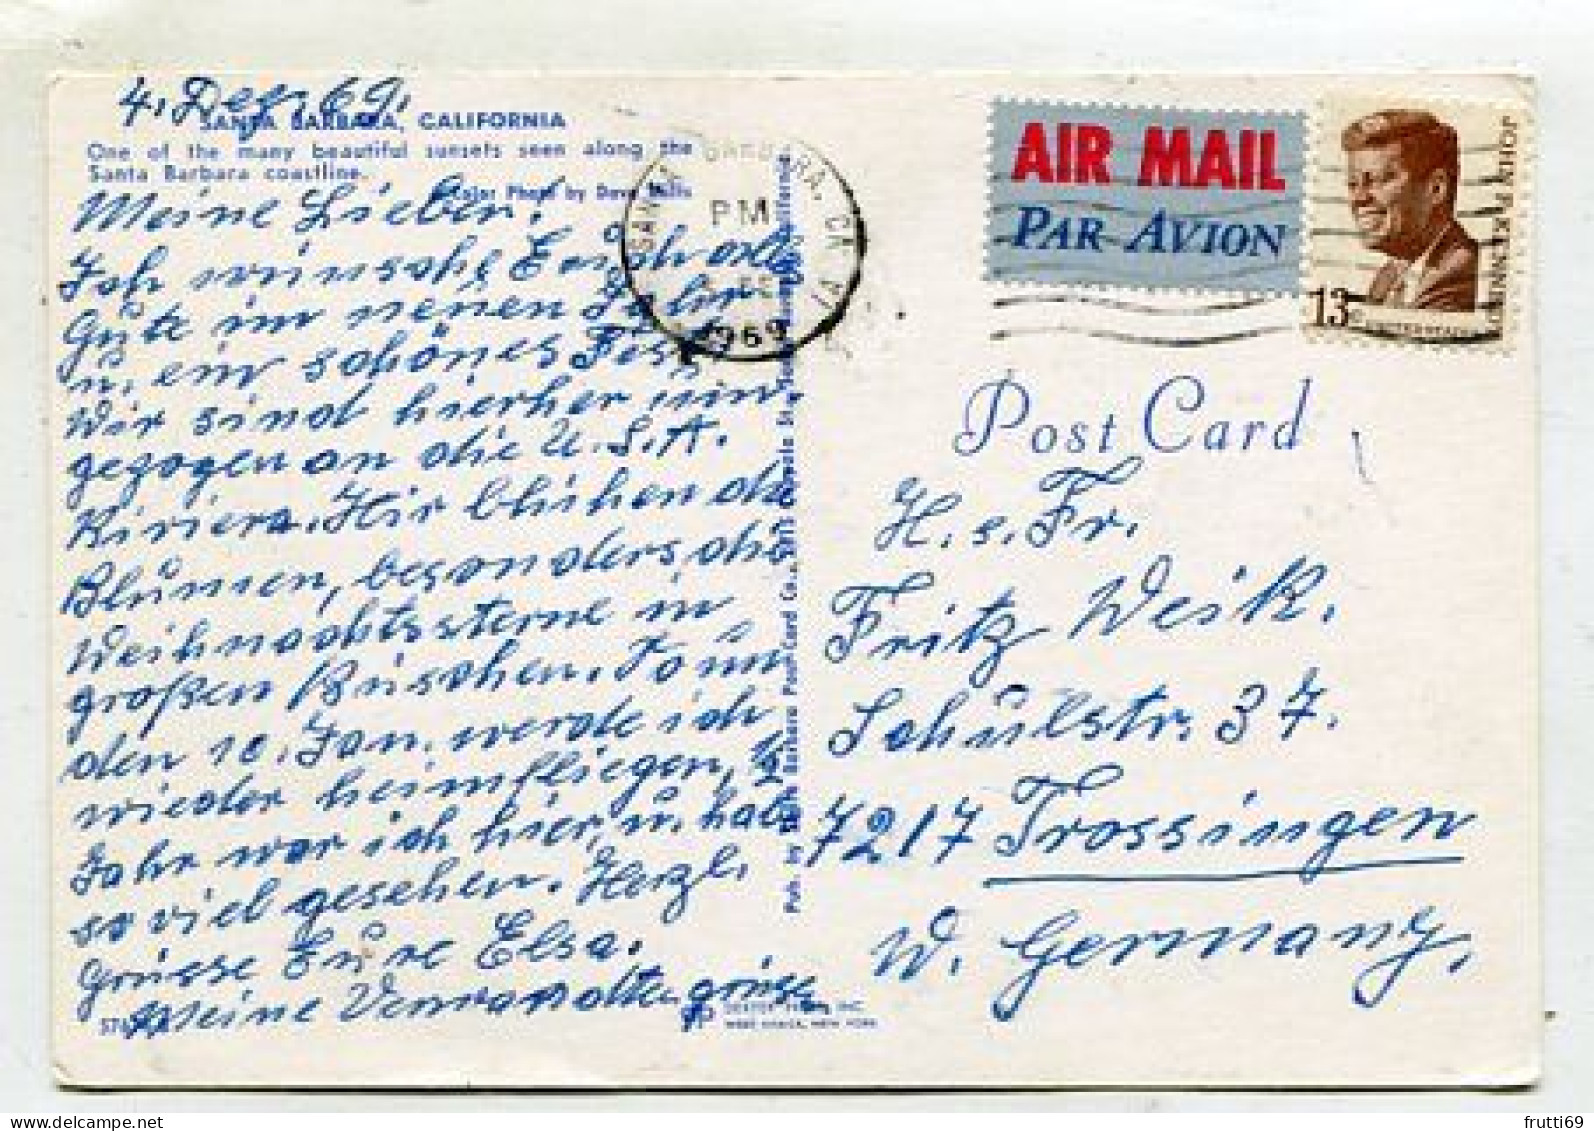 4. Dez. 69.
SANTA BARBARA, CALIFORNIA
One of the many beautiful sunsets seen along the
Santa Barbara coastline.
Color Photo by Dave
Meine Lieben!
Ich wünsche Euch alles
Gute im neuen Jahr
u. ein schönes Fest.
Wir sind hierher um
gezogen an die U.S.A.
Riviera. Hir blühen die
Blumen, besonders die
Weihnachtssterne in
großen Büschen. So um
den 10. Jan. werde ich
wieder heimfliegen, ½
Jahr war ich hier, u. hab
so viel gesehen. Herzl.
Grüsse Eure Elsa.
Meine Verwandte grüssen
DEXTER PRESS, INC.
WEST NYACK, NEW YORK
Pub. by Santa Barbara Post Card Co.,
SANTA BARBARA, CA
PM
DEC
1969
AIR MAIL
PAR AVION
JOHN F. KENNEDY
13c UNITED STATES
Post Card
H. u. Fr.
Fritz Weik.
Schülstr. 37.
7217 Trossingen
W. Germany.
frutti69